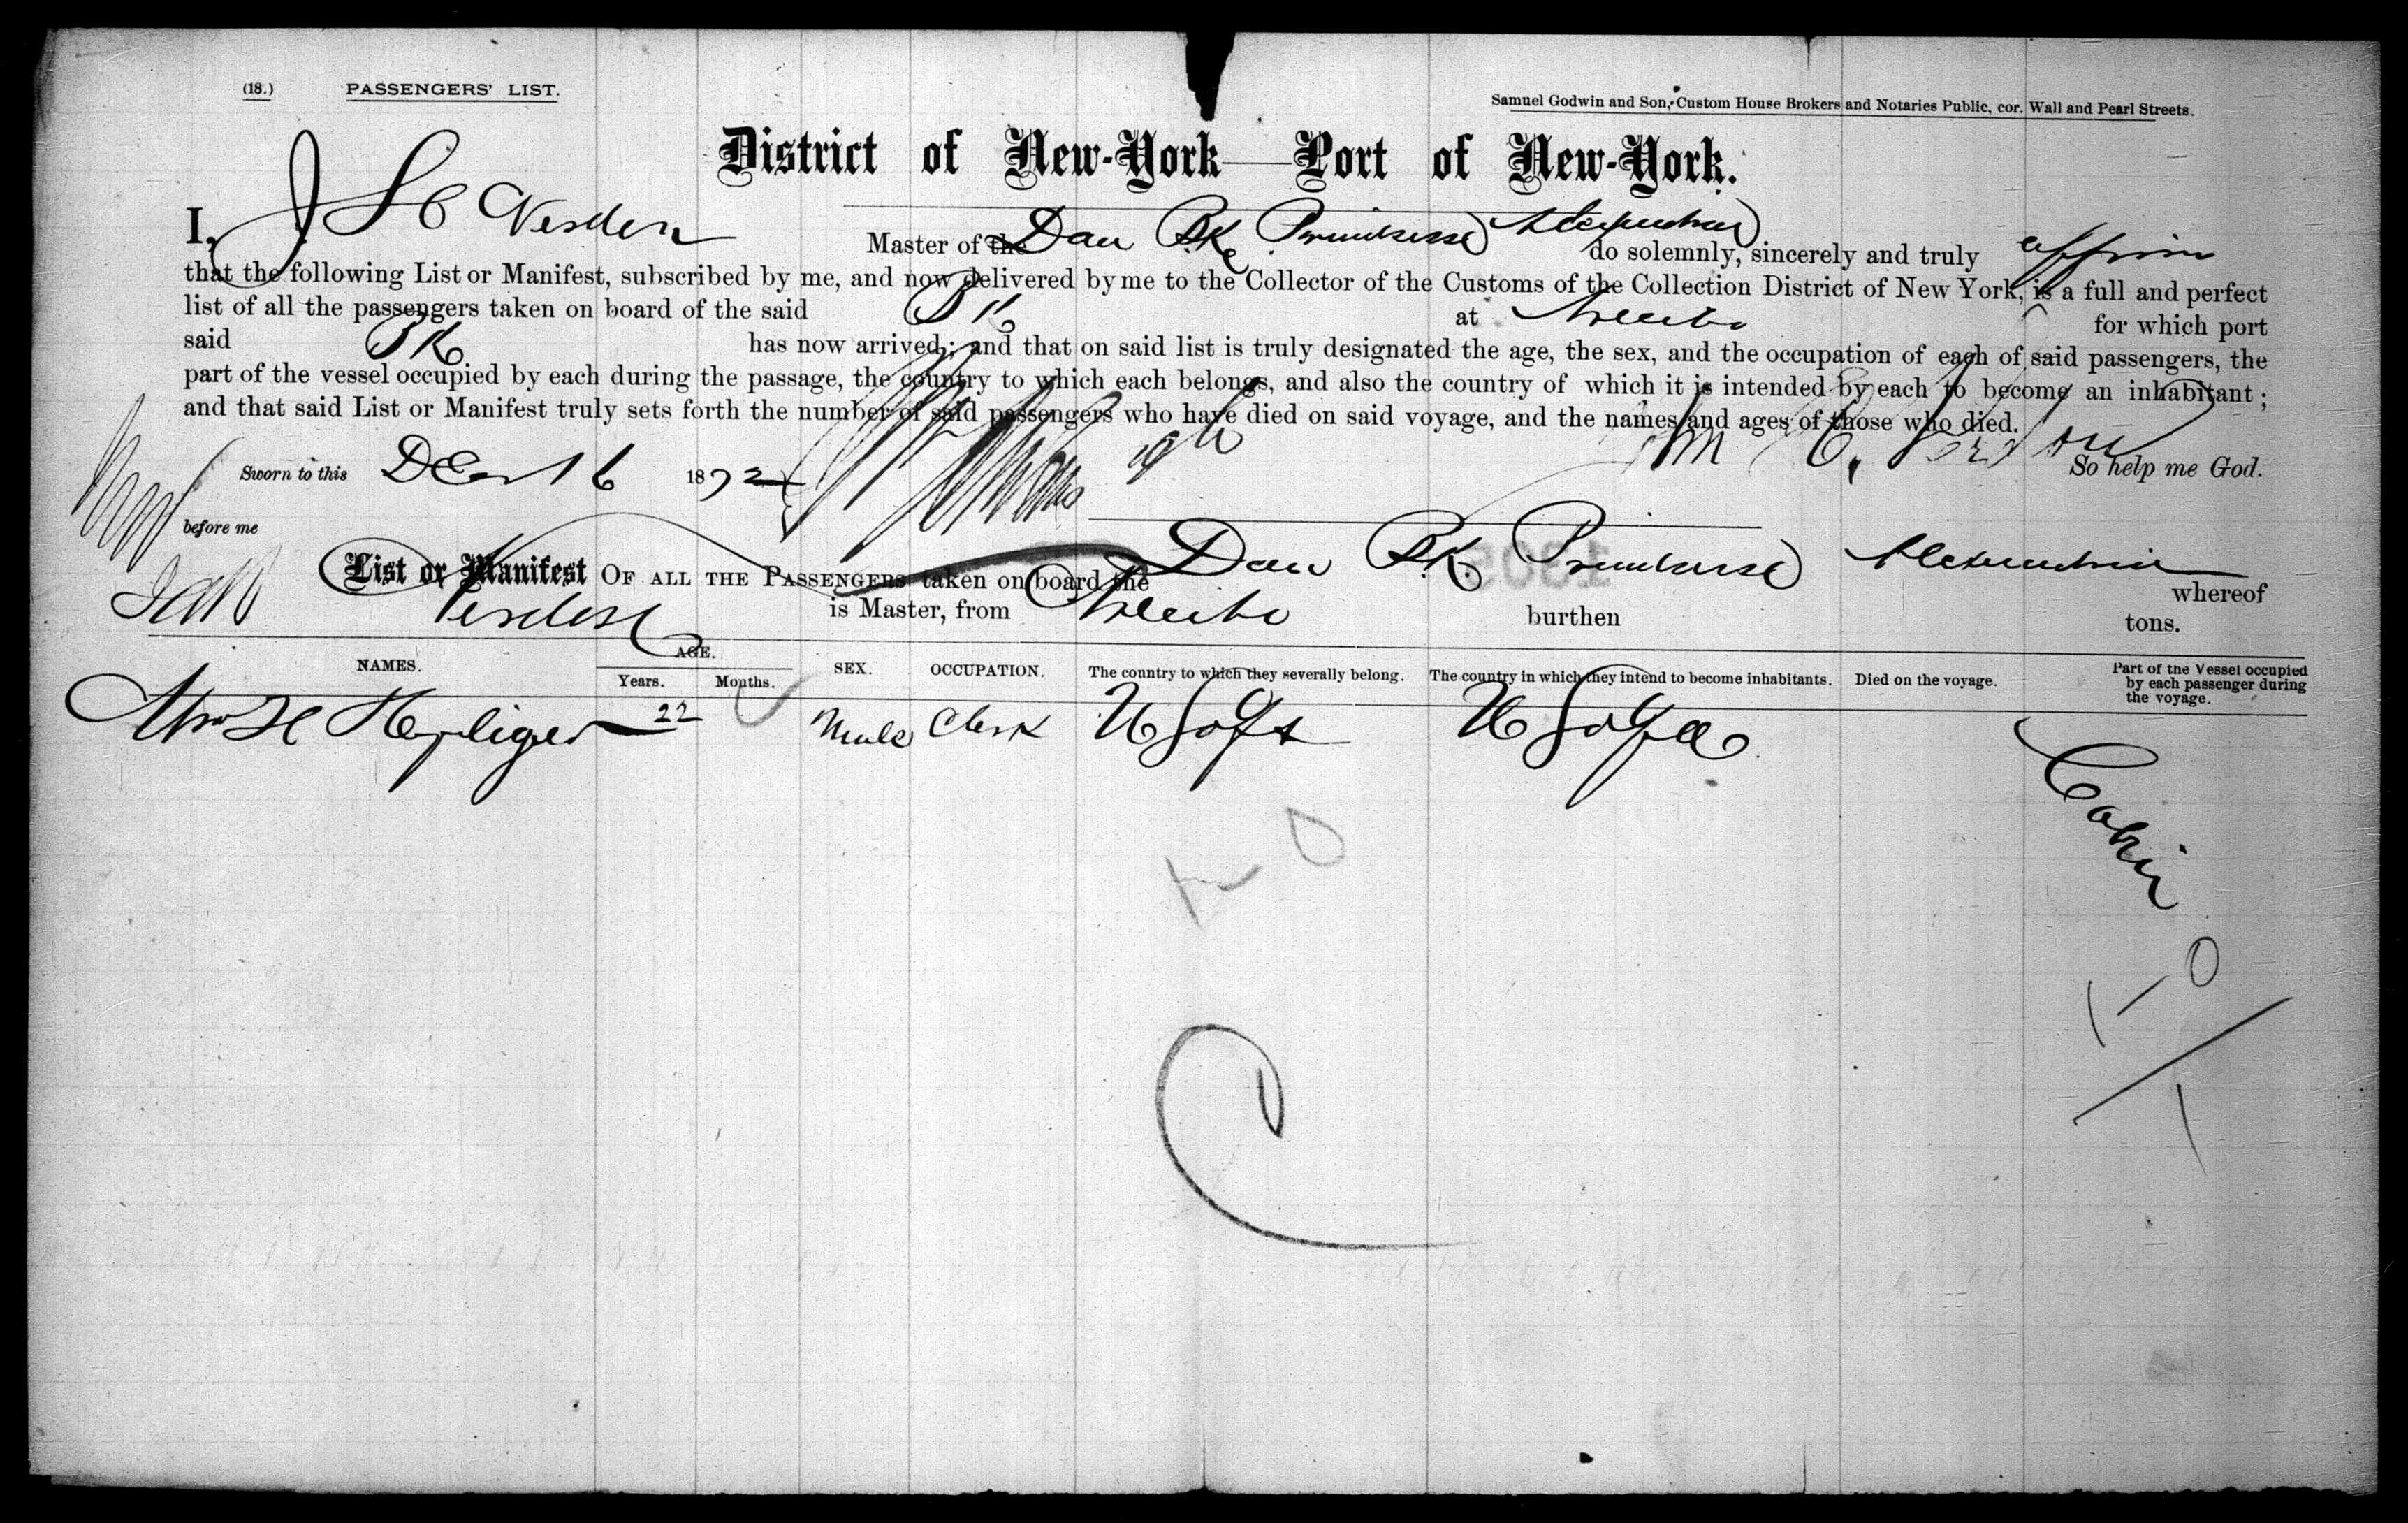 (18.) PASSENGERS' LIST.
Samuel Godwin and Son, Custom House Brokers and Notaries Public, cor. Wall and Pearl Streets.
District of New-York—Port of New-York.
I, Master of the Dan Bk Alexandria do solemnly, sincerely and truly affirm
that the following List or Manifest, subscribed by me, and now delivered by me to the Collector of the Customs of the Collection District of New York, is a full and perfect
list of all the passengers taken on board of the said Bk at Arecibo for which port
said Bk has now arrived; and that on said list is truly designated the age, the sex, and the occupation of each of said passengers, the
part of the vessel occupied by each during the passage, the country to which each belongs, and also the country of which it is intended by each to become an inhabitant;
and that said List or Manifest truly sets forth the number of said passengers who have died on said voyage, and the names and ages of those who died.
So help me God.
Sworn to this Dec 16 1872
before me
List or Manifest OF ALL THE PASSENGERS taken on board the Dan Bk Alexandria whereof
is Master, from Arecibo burthen tons.
NAMES. AGE. Years. Months. SEX. OCCUPATION. The country to which they severally belong. The country in which they intend to become inhabitants. Died on the voyage. Part of the Vessel occupied by each passenger during the voyage.
22 Male Clerk U S of A U S of A Cabin